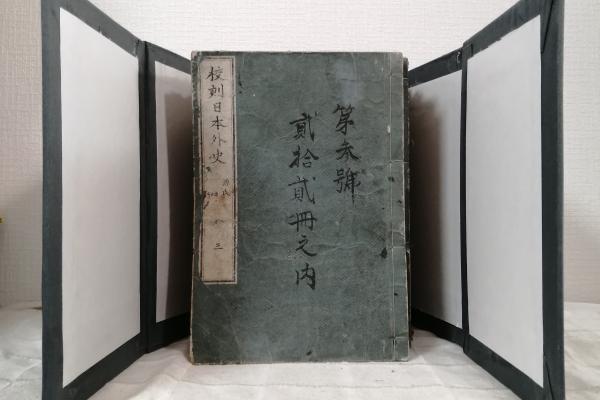 第参號
貳拾貳冊之内
校刻日本外史
源氏
三